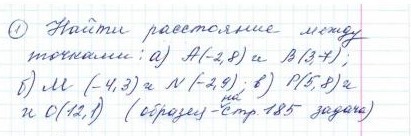 ① Найти расстояние между
точками: а) А(-2,8) и В(3,-7);
б) М (-4,3) и N (-2,9) в) Р(5,8) и
и О(12,1) (образец - на стр. 185 задача)